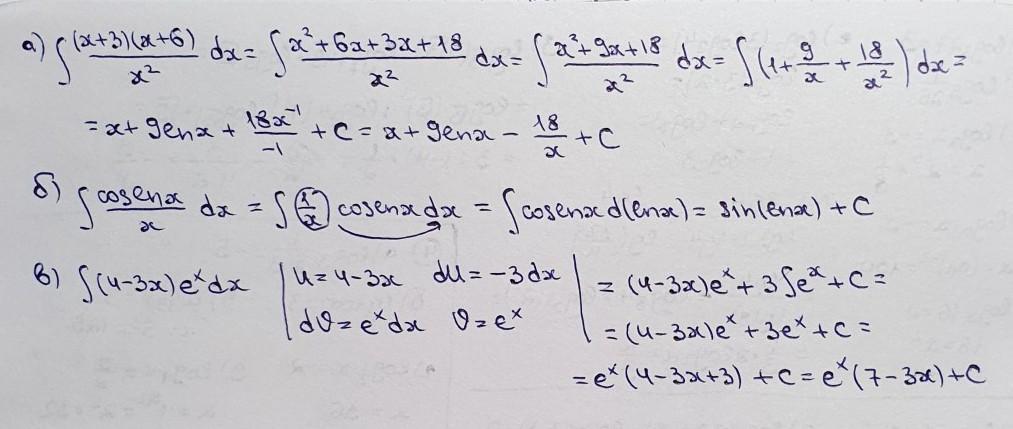 а) ∫ (x+3)(x+6)/x² dx = ∫ x²+6x+3x+18/x² dx = ∫ x²+9x+18/x² dx = ∫ (1 + 9/x + 18/x²) dx =
= x + 9lnx + 18x⁻¹/-1 + C = x + 9lnx - 18/x + C
б) ∫ coslnx/x dx = ∫ (1/x) coslnx dx = ∫ coslnx d(lnx) = sin(lnx) + C
в) ∫ (4-3x)eˣdx | u = 4-3x du = -3dx | = (4-3x)eˣ + 3∫eˣ + C =
dv = eˣdx v = eˣ | = (4-3x)eˣ + 3eˣ + C =
= eˣ(4-3x+3) + C = eˣ(7-3x) + C